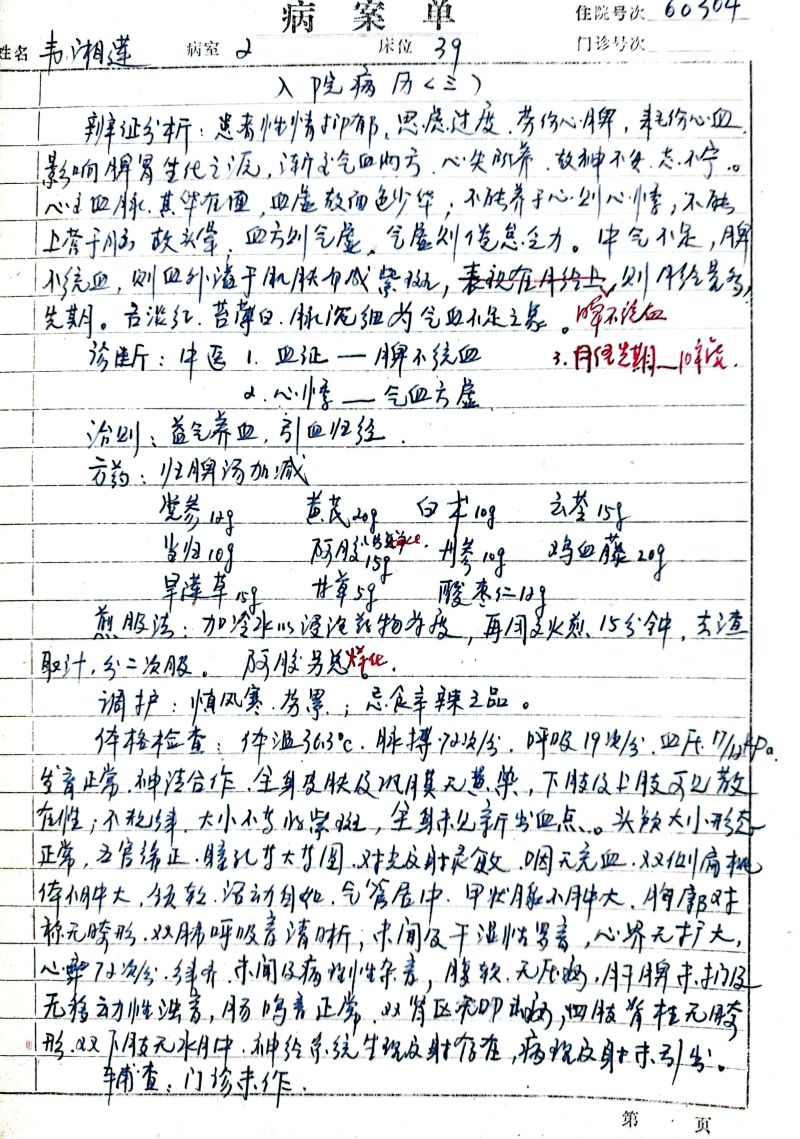 病案单
住院号次 60304
姓名 韦湘莲 病室 2 床位 39 门诊号次
入院病历(三)
辨证分析：患者性情抑郁，思虑过度，劳伤心脾，耗伤心血，
影响脾胃生化之源，渐至气血两亏，心失所养，故神不安，志不宁。
心主血脉，其华在面，血虚故面色少华；不能养于心则心悸，不能
上营于脑故头晕，血亏则气虚，气虚则倦怠乏力。中气不足，脾
不统血，则血外溢于肌肤而成紫斑，表现在月经上，则月经量多，
先期。舌淡红，苔薄白，脉沉细为气血不足之象。脾不统血
诊断：中医 1. 血证—脾不统血 3. 月经先期—
2. 心悸—气血亏虚
治则：益气养血，引血归经.
方药：归脾汤加减
党参12g 黄芪20g 白术10g 云苓15g
当归10g 阿胶15g 丹参10g 鸡血藤20g
旱莲草15g 甘草5g 酸枣仁12g
煎服法：加冷水以浸泡药物为度，再用文火煎15分钟，去渣
取汁，分二次服。阿胶另烊化.
调护：慎风寒、劳累；忌食辛辣之品。
体格检查：体温36.3℃. 脉搏72次/分. 呼吸19次/分. 血压17/12kPa.
发育正常，神清合作，全身皮肤及巩膜无黄染，下肢及上肢可见散
在性；不规律，大小不等的紫斑，全身未见新出血点。头颅大小形态
正常，五官端正，瞳孔等大等圆，对光反射灵敏，咽无充血，双侧扁桃
体不肿大，颈软，活动自如，气管居中，甲状腺不肿大，胸廓对
称无畸形，双肺呼吸音清晰，未闻及干湿性罗音，心界无扩大，
心率72次/分，律齐，未闻及病理性杂音，腹软，无压痛，肝脾未扪及，
无移动性浊音，肠鸣音正常，双肾区无叩痛，四肢脊柱无畸
形，双下肢无水肿，神经系统生理反射存在，病理反射未引出。
辅查：门诊未作.
第 页